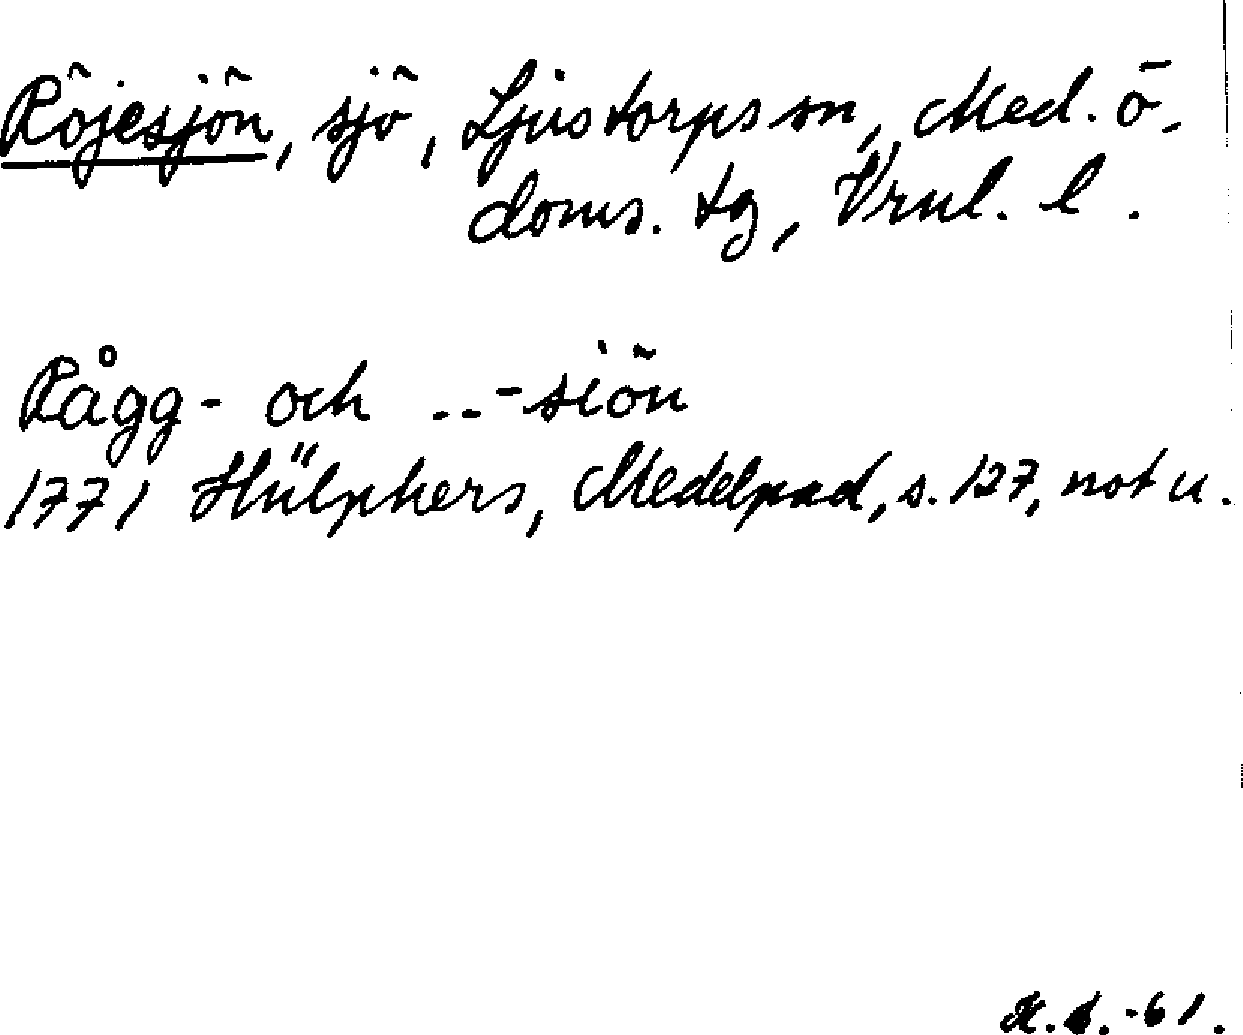 Röjesjön, sjö, Ljustorps sn, Med. ö.
doms. tg, Vrnl. l.
Rågg- och ..-siön
1771 Hülphers, Medelpad, s. 127, not u.
-61.